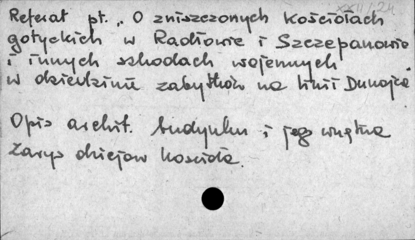 XXIII/24
Referat pt. „O zniszczonych kościołach
gotyckich w Radłowie i Szczepanowie
i innych szkodach wojennych
w dziedzinie zabytków na linii Dunajca
Opis archit. budynku i jego wnętrza
Zarys dziejów kościoła.